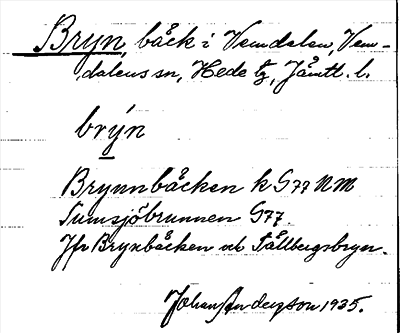 Bryn, bäck i Vemdalen, Vem-
dalens sn, Hede tg, Jämtl. l.
brýn
Brynnbäcken k G77 NM
Tumsjöbrunnen G77.
Jfr Brynbäcken och Fållbergsbryn.
Johan Anderson 1935.